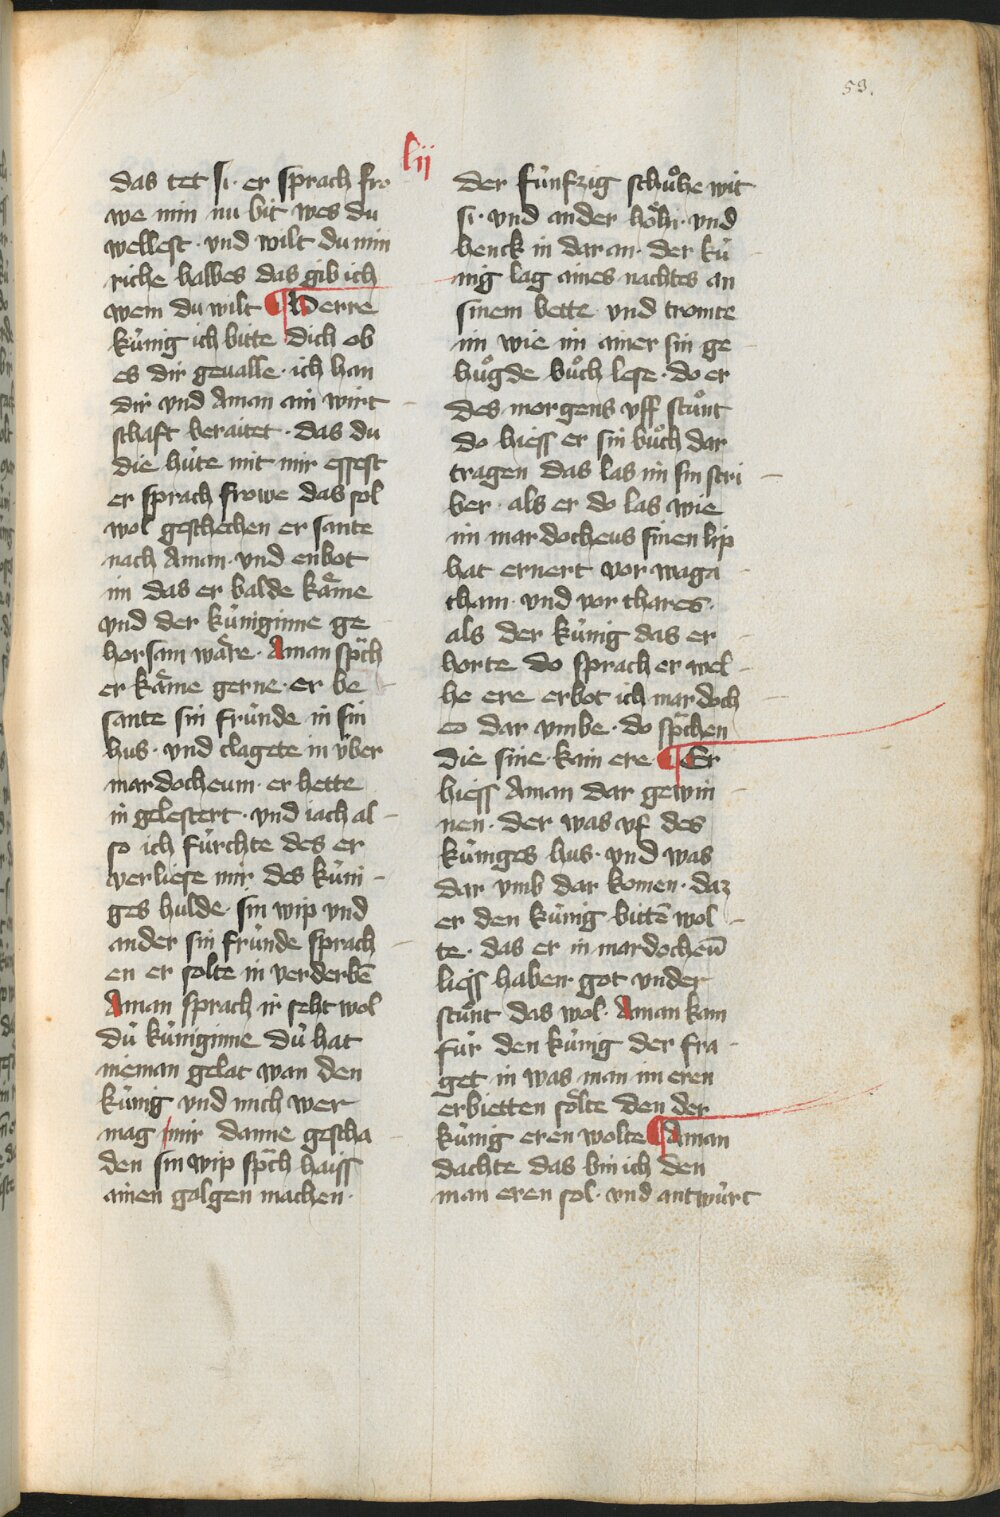 59.
lij
das tet si · er sprach fro
we min nu bit wes du
wellest · vnd wilt du min
riche halbes das gib ich
wem du wilt ¶ Herre
kúnig ich bitte dich ob
es dir geualle · ich han
dir vnd Aman ain wirt
schaft beraitet · das du
die húte mit mir essest
er sprach frowe das sol
wol geschechen er sante
nach Aman · vnd enbot
im das er balde kaͤme
vnd der kúniginne ge
horsam waͤre · Aman spͣch
er kaͤme gerne · er be
sante sin frúnde in sin
hus · vnd clagete in v́ber
mardocheum · er hette
in gelestert · vnd iach al
so ich fúrchte des er
verliese mir des kúni
ges hulde · sin wip vnd
ander sin frúnde sprach
en er solte in verderbē
Aman sprach ir seht wol
dú kúniginne dú hat
nieman gelat wan den
kúnig vnd mich wer
mag mir danne gescha
den sin wip spͣch haiss
ainen galgen machen ·
der fúnfzig schuͦhe wit
si · vnd ander hoͤhi · vnd
henck in dar an · der kú
nig lag aines nachtes an
sinem bette vnd tromte
im wie im ainer sin ge
huͦgde buͦch lese · do er
des morgens vff stuͦnt
do hiess er sin buͦch dar
tragen das las im sin scri
ber · als er do las wie
im mardocheus sinen lip
hat ernert vor waga
tham · vnd vor thares ·
als der kúnig das er
horte do sprach er wel
he ere erbot ich mardoch
eo dar vmbe · do spͣchen
die sine · kain ere · ¶ Er
hiess Aman dar gewin
nen · der was vf des
kúniges hus · vnd was
dar vmb dar komen · daz
er den kúnig bittē wol
te · das er in mardocheū
liess haben · got vnder
stuͦnt das wol · Aman kam
fúr den kúnig der fra
get in was man im eren
erbietten soͤlte den der
kúnig eren wolte ¶ Aman
dachte das bin ich den
man eren sol · vnd antwúrt